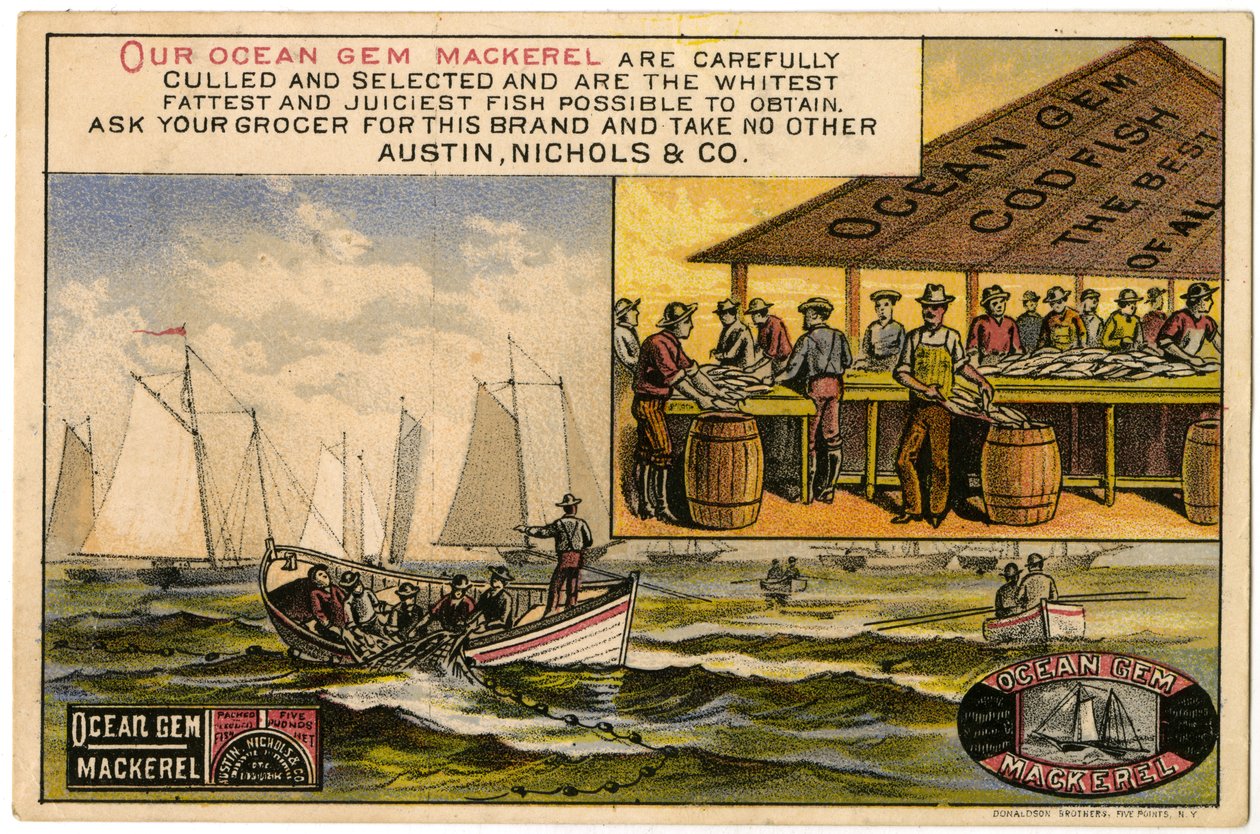 OUR OCEAN GEM MACKEREL ARE CAREFULLY
CULLED AND SELECTED AND ARE THE WHITEST
FATTEST AND JUICIEST FISH POSSIBLE TO OBTAIN.
ASK YOUR GROCER FOR THIS BRAND AND TAKE NO OTHER
AUSTIN, NICHOLS & CO.
OCEAN GEM
CODFISH
THE BEST
OF ALL
OCEAN GEM
MACKEREL
PACKED
FIVE
POUNDS
NET
AUSTIN, NICHOLS & CO
OCEAN GEM
MACKEREL
DONALDSON BROTHERS, FIVE POINTS, N.Y